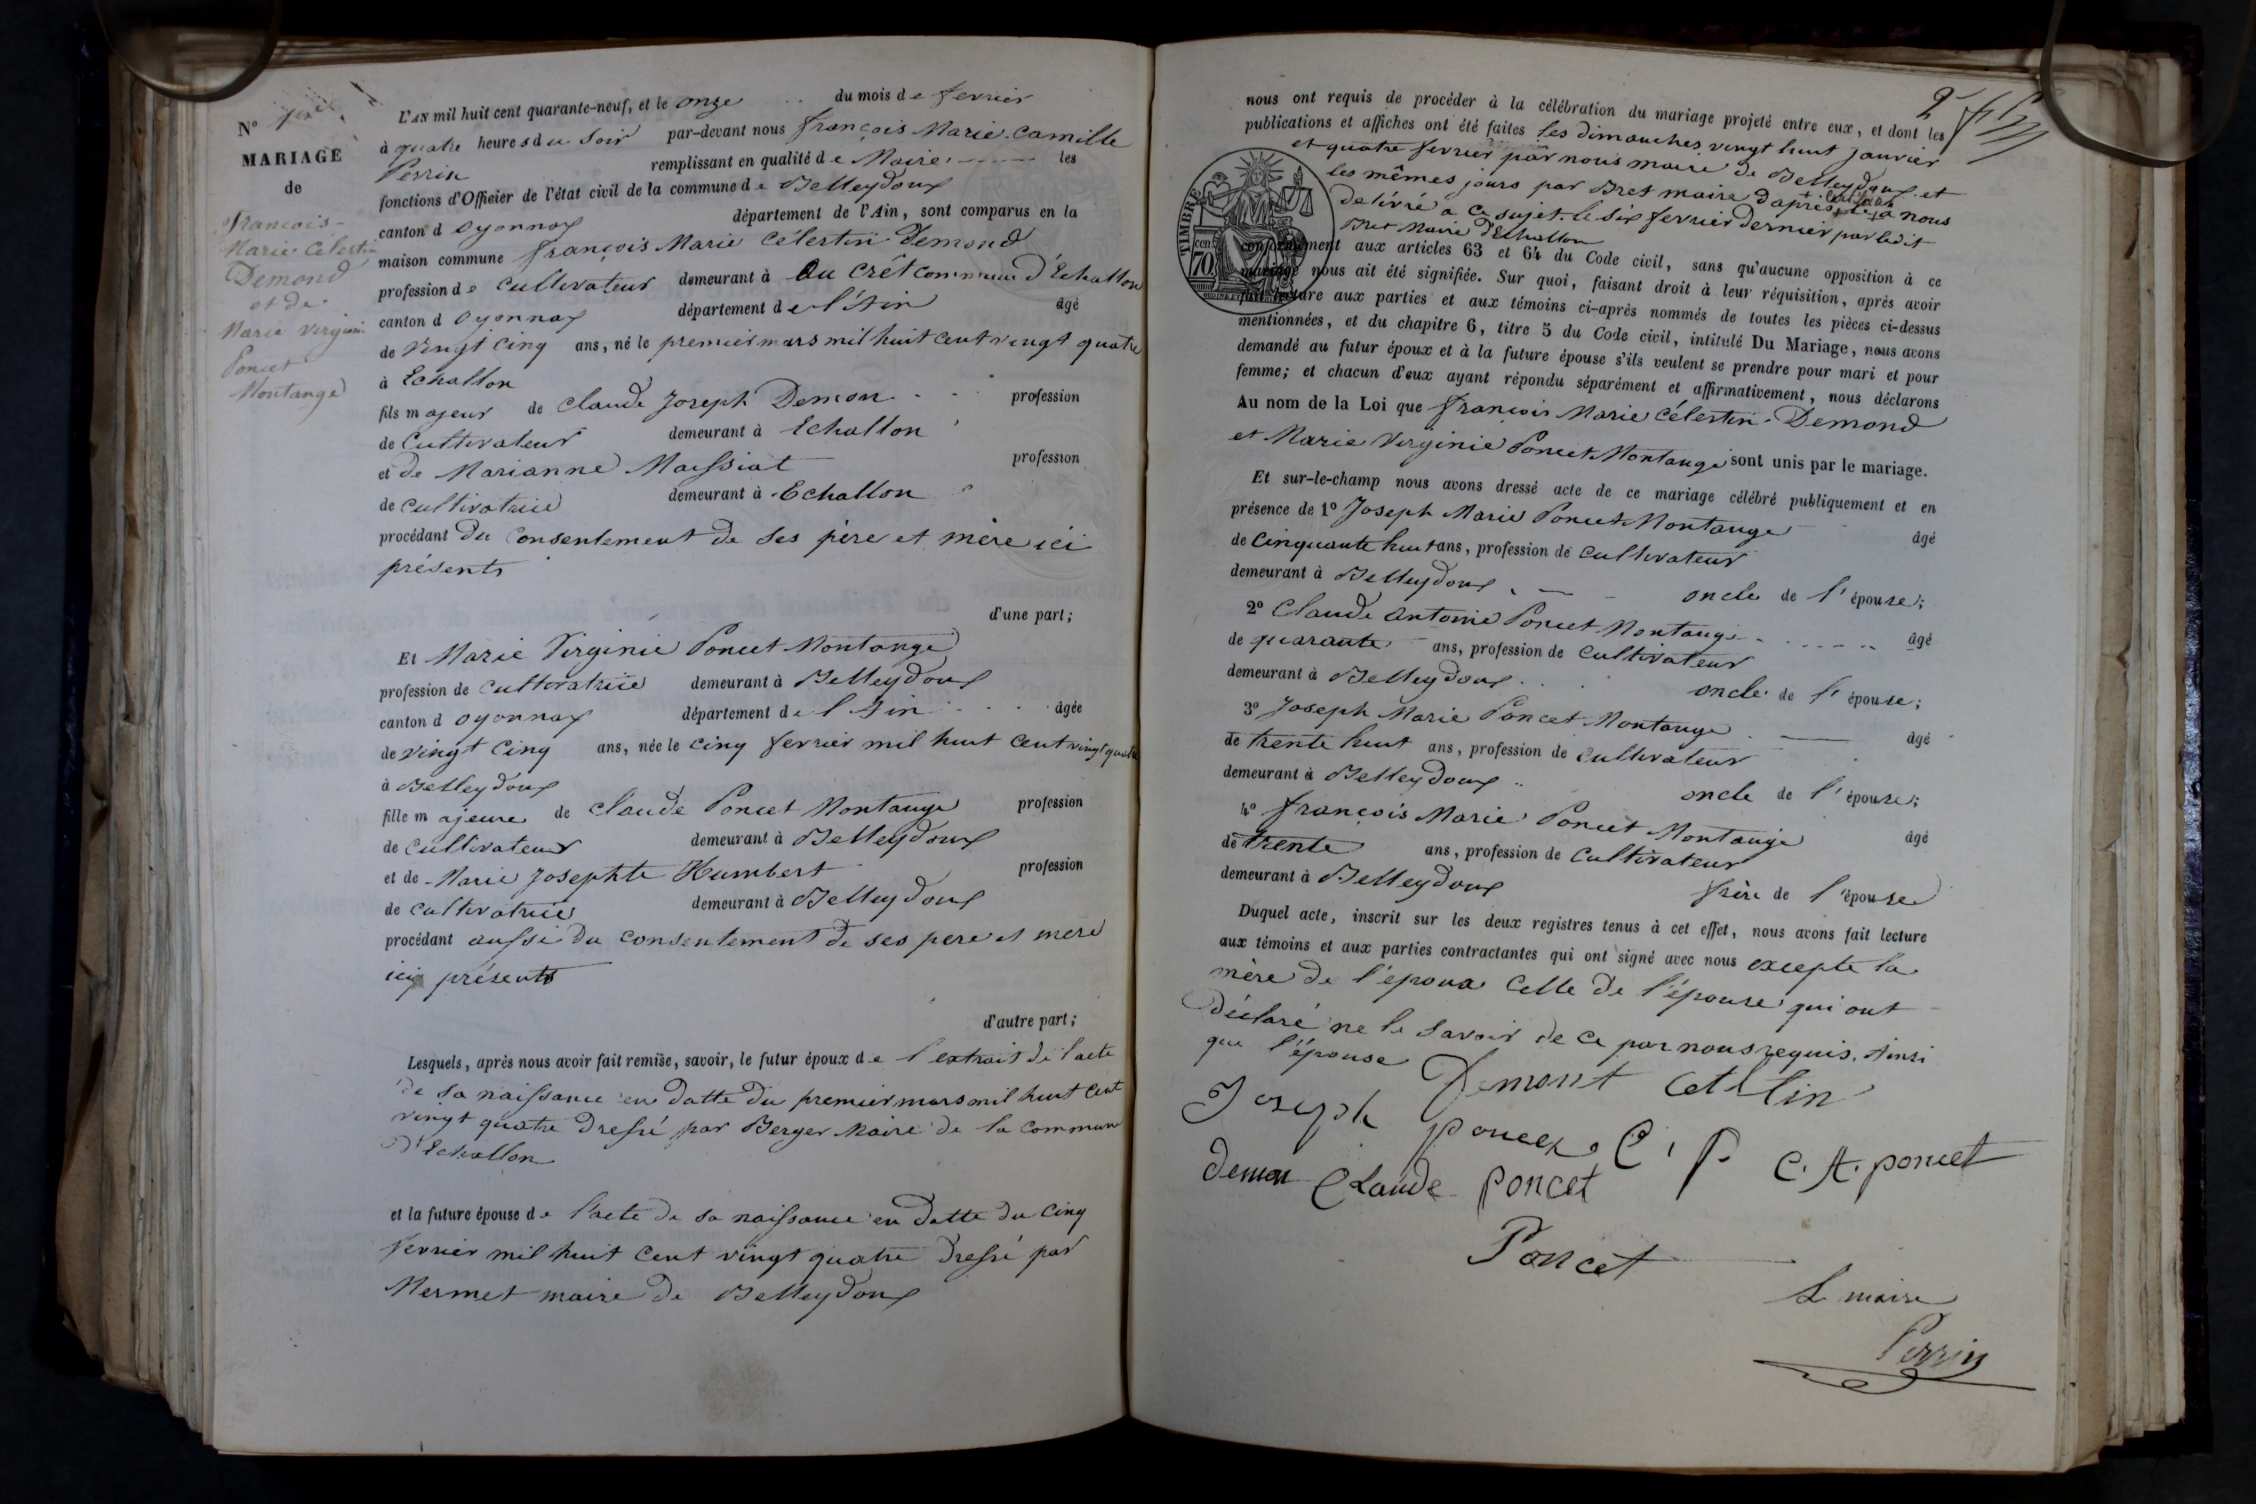 N° 1er
MARIAGE
de
François
Marie Célestin
Demond
et de
Marie Virginie
Poncet
Montange
L'AN mil huit cent quarante-neuf, et le onze du mois de fevrier
à quatre heures du soir par-devant nous françois Marie Camille
Perrin remplissant en qualité de Maire les
fonctions d'Officier de l'état civil de la commune de Belleydoux
canton d oyonnax département de l'Ain, sont comparus en la
maison commune françois Marie Célestin Demond
profession de cultivateur demeurant à Au crêt commune d'Echallon
canton d oyonnax département de l'Ain âgé
de vingt cinq ans, né le premier mars mil huit cent vingt quatre
à Echallon
fils majeur de Claude Joseph Demon profession
de cultivateur demeurant à Echallon
et de Marianne Maissiat profession
de cultivatrice demeurant à Echallon
procédant du consentement de ses père et mère ici
présents
d'une part;
Et Marie Virginie Poncet Montange
profession de cultivatrice demeurant à Belleydoux
canton d oyonnax département de l'Ain âgée
de vingt cinq ans, née le cinq fevrier mil huit cent vingt quatre
à Belleydoux
fille majeure de Claude Poncet Montange profession
de cultivateur demeurant à Belleydoux
et de Marie Josephte Humbert profession
de cultivatrice demeurant à Belleydoux
procédant aussi du consentement de ses pere et mere
ici présents
d'autre part;
Lesquels, après nous avoir fait remise, savoir, le futur époux de l'extrait de l'acte
de sa naissance en datte du premier mars mil huit cent
vingt quatre dressé par Berger Maire de la commune
d'Echallon
et la future épouse de l'acte de sa naissance en datte du cinq
fevrier mil huit cent vingt quatre dressé par
Mermet maire de Belleydoux
2
nous ont requis de procéder à la célébration du mariage projeté entre eux, et dont les
publications et affiches ont été faites les dimanches vingt huit janvier
et quatre fevrier par nous maire de Belleydoux et
les mêmes jours par Bret maire d'après le certificat à nous
délivré à ce sujet le six fevrier dernier par ledit
Bret Maire d'Echallon
TIMBRE
70 cent
conformément aux articles 63 et 64 du Code civil, sans qu'aucune opposition à ce
mariage nous ait été signifiée. Sur quoi, faisant droit à leur réquisition, après avoir
fait lecture aux parties et aux témoins ci-après nommés de toutes les pièces ci-dessus
mentionnées, et du chapitre 6, titre 5 du Code civil, intitulé Du Mariage, nous avons
demandé au futur époux et à la future épouse s'ils veulent se prendre pour mari et pour
femme; et chacun d'eux ayant répondu séparément et affirmativement, nous déclarons
Au nom de la Loi que françois Marie Célestin Demond
et Marie Virginie Poncet Montange sont unis par le mariage.
Et sur-le-champ nous avons dressé acte de ce mariage célébré publiquement et en
présence de 1° Joseph Marie Poncet Montange âgé
de cinquante huit ans, profession de cultivateur
demeurant à Belleydoux oncle de l'épouse;
2° Claude Antoine Poncet Montange âgé
de quarante ans, profession de cultivateur
demeurant à Belleydoux oncle de l'épouse;
3° Joseph Marie Poncet Montange âgé
de trente huit ans, profession de cultivateur
demeurant à Belleydoux oncle de l'épouse;
4° françois Marie Poncet Montange âgé
de trente ans, profession de cultivateur
demeurant à Belleydoux frère de l'épouse
Duquel acte, inscrit sur les deux registres tenus à cet effet, nous avons fait lecture
aux témoins et aux parties contractantes qui ont signé avec nous excepte la
mère de l'époux Celle de l'épouse qui ont
déclaré ne le savoir de ce par nous requis. Ainsi
que l'épouse
Demont
Joseph poncet C. P. C. A. poncet
demon Claude poncet
Poncet
Le maire
Perrin